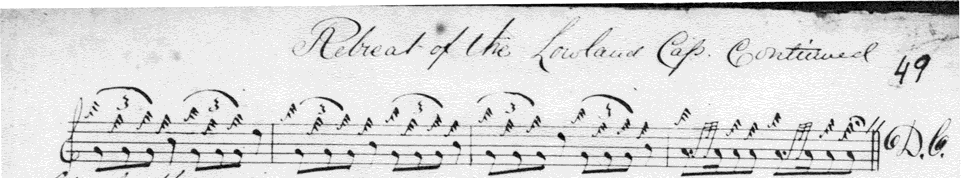 Retreat of the Lowland Cap. Continued
49
3 3 3 3 3 3
D.C.